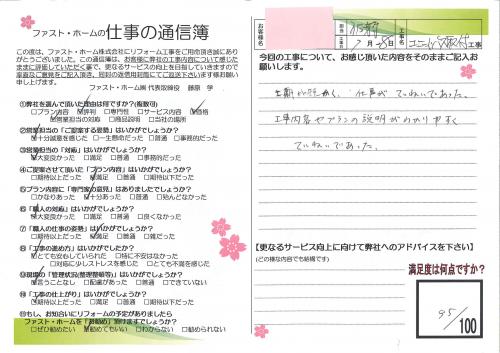 ファスト・ホームの仕事の通信簿
この度は、ファスト・ホーム株式会社にリフォーム工事をご用命頂き誠にあり
がとうございました。この通信簿は、お客様に弊社の工事内容について感じた
ままに評価していただく事で、更なるサービスの向上を目指していきますので
率直なご意見をご記入頂き、同封の返信用封筒にてご返送下さいます様お願い
申し上げます。
ファスト・ホーム㈱ 代表取締役 藤原 学
①弊社を選んで頂いた理由は何ですか?(複数可)
□プラン内容 □評判 □専門性 □価格
□営業の対応 □商品説明 □当社の場所
②営業担当の「ご提案する姿勢」はいかがでしょうか?
□十分誠意を感じた □一生懸命だった □事務的だった
③営業担当の「対応」はいかがでしょうか?
□大変良かった □満足 □普通 □事務的だった
④ご提案させて頂いた「プラン内容」はいかがでしょうか?
□期待以上だった □満足 □普通 □期待以下だった
⑤プラン内容に「専門家の意見」はありましたでしょうか?
□かなりあった □十分あった □普通 □殆んどなかった
⑥「職人の対応」はいかがでしょうか?
□大変良かった □満足 □普通 □良くなかった
⑦「職人の仕事の姿勢」はいかがでしょうか?
□期待以上だった □満足 □普通 □雑だった
⑧「工事の進め方」はいかがでしたか?
□とても安心していられた □特に不安はなかった
□対応に少しストレスを感じた □とても不満を感じた
⑨現場の「管理状況(整理整頓等)」はいかがでしょうか?
□言うことなし □配慮があった □普通 □できていない
⑩「工事の仕上がり」はいかがでしょうか?
□期待以上だった □満足 □普通 □期待以下だった
⑪もし、お知合いにリフォームの予定がありましたら
ファスト・ホームを「お勧め」頂けますでしょうか?
□ぜひ勧めたい □勧めてもいい □わからない □勧められない
お客様名
担当
工事名
工事
今回の工事について、お感じ頂いた内容をそのままご記入
お願いします。
仕事がていねいであった。
工事内容やプランの説明がわかりやすく
ていねいであった。
【更なるサービス向上に向けて弊社へのアドバイスを下さい】
(どの様な内容でも結構です)
満足度は何点ですか?
95/100